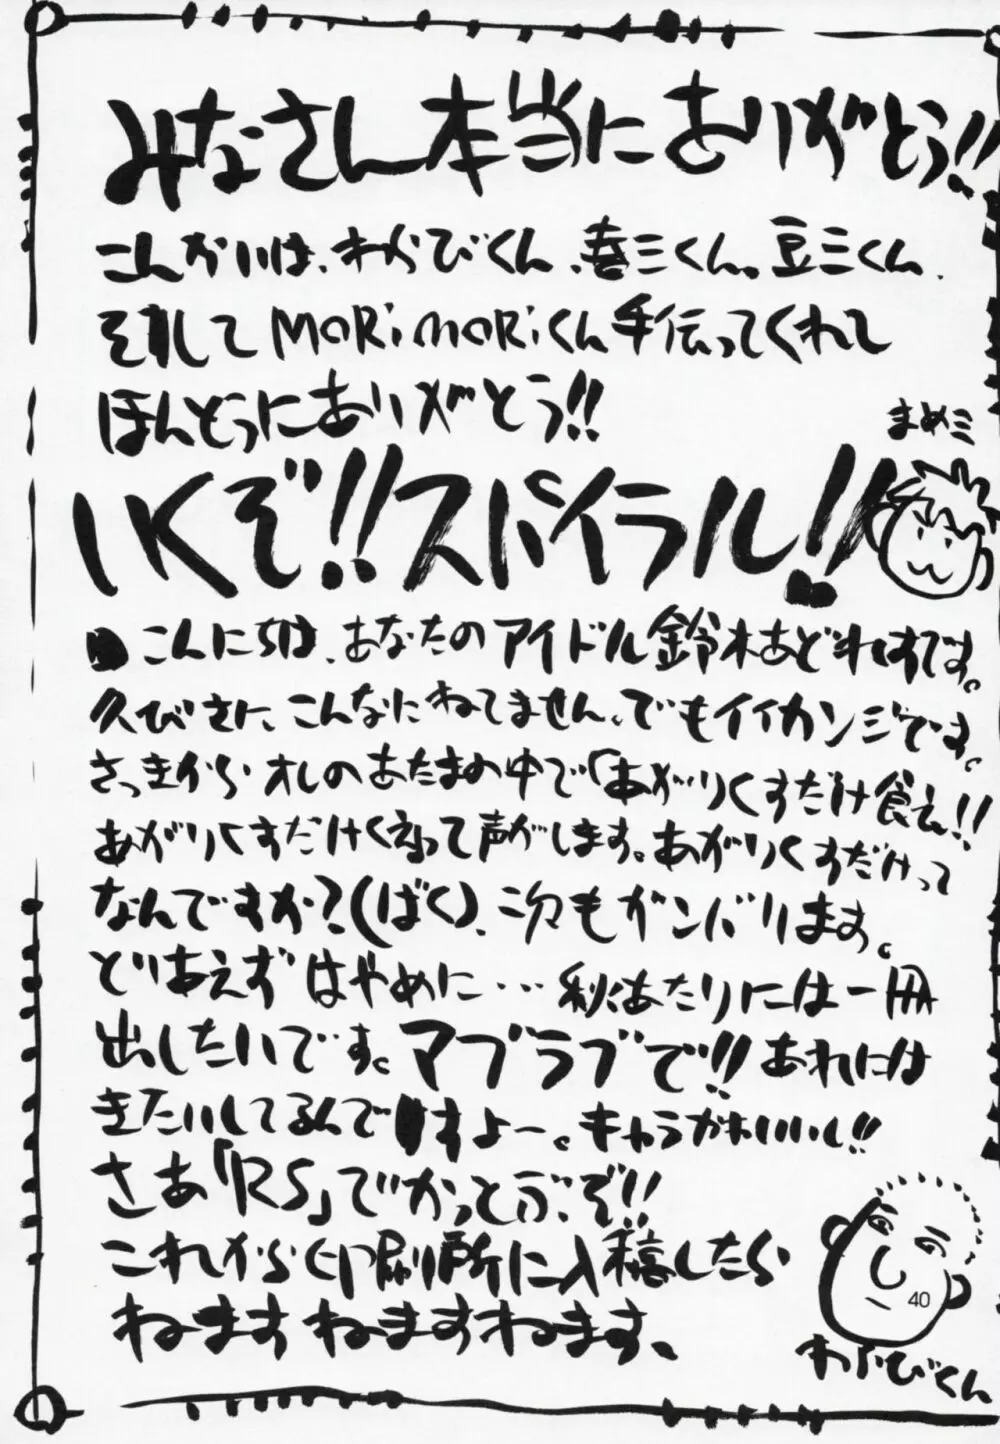 みなさん本当にありがとう!!
こんかいは、わらびくん、喜三くん。豆三くん、
そしてMORiMORiくん手伝ってくれて
ほんとうにありがとう!!
まめ三
いくぞ!!スパイラル!!
●こんにちは、あなたのアイドル鈴木あどれすです。
久びさに、こんなにねてません、でもイイカンジです。
さっきからオレのあたまの中で「あがりくすだけ食え!!
あがりくすだけくえって声がします。あがりくすだけって
なんですか?(ばく)、次もガンバリます。
とりあえずはやめに…秋あたりには一冊
出したいです。マブラブで!!あれには
きたいしてるんですよー。キャラかわいいし!!
さあ「RS」でかっとぶぞ!!
これから印刷所に入稿したら
ねますねますねます、
40
わらびくん